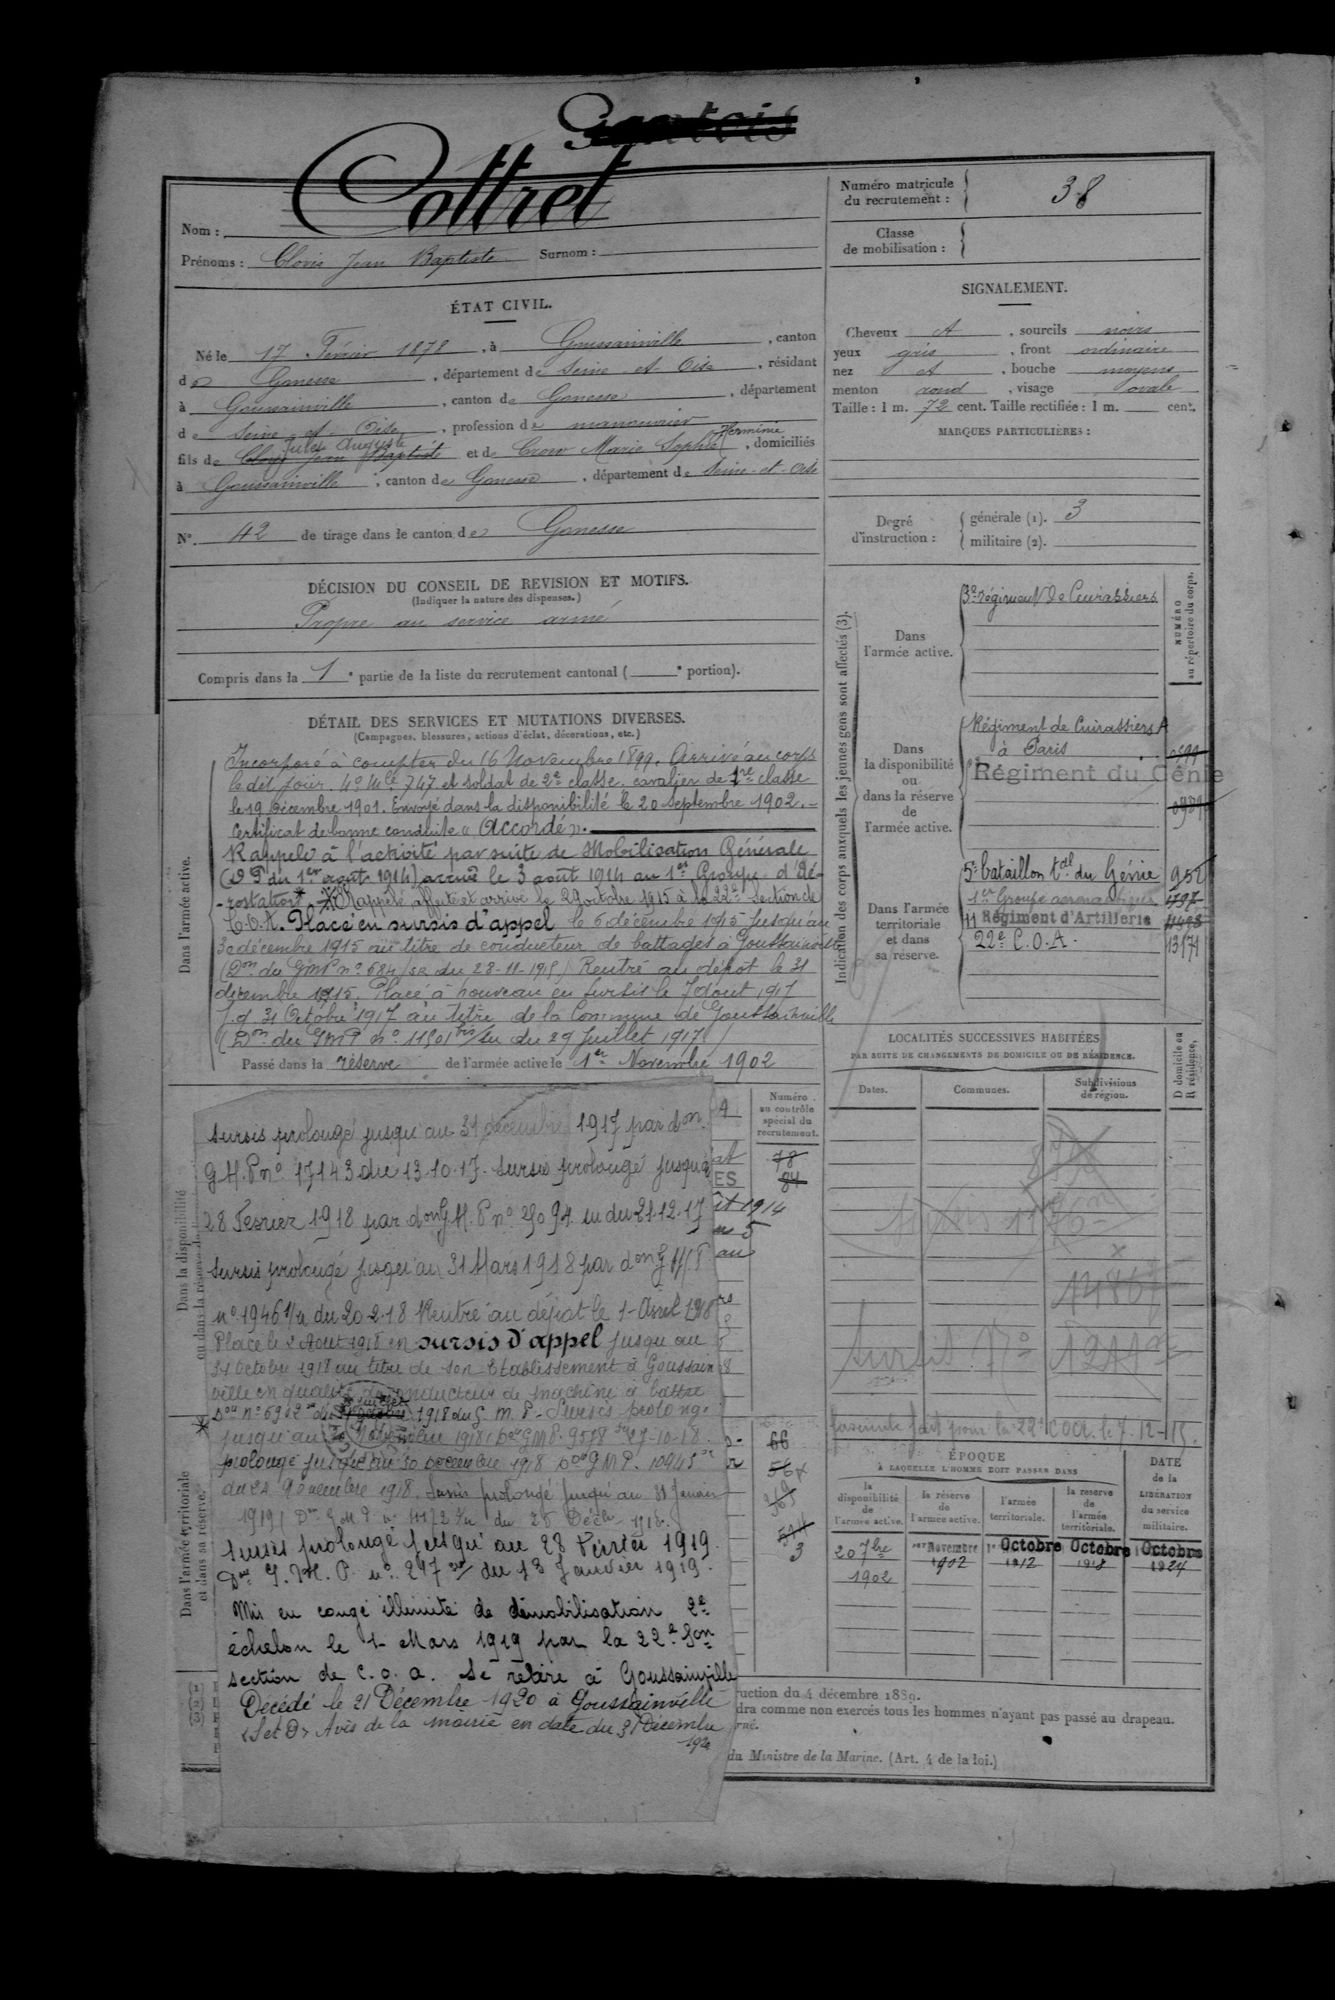 Cottret
Nom :
Prénoms : Clovis Jean Baptiste Surnom :
ÉTAT CIVIL.
Né le 17 Février 1878, à Goussainville, canton
de Gonesse, département de Seine et Oise, résidant
à Goussainville, canton de Gonesse, département
de Seine et Oise, profession de manouvrier
Jules Auguste Herminie
fils de Clovis Jean Baptiste et de Crow Marie Sophie, domiciliés
à Goussainville, canton de Gonesse, département de Seine-et-Oise
N° 42 de tirage dans le canton de Gonesse
DÉCISION DU CONSEIL DE REVISION ET MOTIFS.
(Indiquer la nature des dispenses.)
Propre au service armé
Compris dans la 1e partie de la liste du recrutement cantonal ( e portion).
DÉTAIL DES SERVICES ET MUTATIONS DIVERSES.
(Campagnes, blessures, actions d'éclat, décorations, etc.)
Dans l'armée active.
Incorporé à compter du 16 Novembre 1899. Arrivé au corps
le dit jour. No Mle 747 et soldat de 2e classe. cavalier de 1re classe
le 19 Décembre 1901. Envoyé dans la disponibilité le 20 septembre 1902.
Certificat de bonne conduite « Accordé ».
Rappelé à l'activité par suite de Mobilisation Générale
(D P du 1er août 1914) arrivé le 3 août 1914 au 1er Groupe d'Aé-
-rostation. Rappelé affecté et arrivé le 29 octobre 1915 à la 22e Section de
C.O.A. Placé en sursis d'appel le 6 décembre 1915 jusqu'au
30 décembre 1915 au titre de conducteur de battages à Goussainville
(Don du GMP n° 684/SR du 28-11-1915) Rentré au dépôt le 31
décembre 1915. Placé à nouveau en sursis le 7 août 1917
j.q. 31 Octobre 1917 au titre de la Commune de Goussainville
(Don du GMP n° 11501 bis/su du 29 Juillet 1917)
Passé dans la réserve de l'armée active le 1er Novembre 1902
Dans la disponibilité
ou dans la réserve
sursis prolongé jusqu'au 31 décembre 1917 par don
G.M.P n° 17143 du 13.10.17. Sursis prolongé jusqu'à
28 Fevrier 1918 par don G.M.P n° 25094 su du 21.12.17
Sursis prolongé jusqu'au 31 Mars 1918 par don G M.P.
n° 19461/u du 20-2-18 Rentré au dépôt le 1 Avril 1918
Placé le 2 Aout 1918 en sursis d'appel jusqu'au
31 Octobre 1918 au titre de son Etablissement à Goussain
ville en qualité de conducteur de machine à battre
Don n° 6902 du 1918 du G.M.P. Sursis prolongé
jusqu'au 30 Novembre 1918. Don GMP. 9578 27-10-18.
prolongé jusqu'au 30 Decembre 1918 Don GMP. 10945
du 24 Novembre 1918. Sursis prolongé jusqu'au 31 Janvier
1919 (Don GMP n° 11172 du 25 Décbre 1918.
Sursis prolongé jusqu'au 28 Février 1919.
Don G.M.P. n° 247 du 13 Janvier 1919.
Mis en congé illimité de démobilisation 2e
échelon le 1 Mars 1919 par la 22e Son
section de C.O.A. Se retire à Goussainville
Décédé le 21 Décembre 1920 à Goussainville
(S et O) Avis de la mairie en date du 31 Décembre
1920
Dans l'armée territoriale
et dans sa réserve.
Numéro
au contrôle
spécial du
recrutement.
78
84
1914
5
au
66
56
3
Numéro matricule
du recrutement : 38
Classe
de mobilisation :
SIGNALEMENT.
Cheveux et, sourcils noirs
yeux gris, front ordinaire
nez et, bouche moyens
menton rond, visage ovale
Taille : 1 m. 72 cent. Taille rectifiée : 1 m. cent.
MARQUES PARTICULIÈRES :
Degré
d'instruction :
générale (1). 3
militaire (2).
Indication des corps auxquels les jeunes gens sont affectés (3).
NUMÉRO
au répertoire du corps.
Dans
l'armée active.
3e régiment de Cuirassiers
Dans
la disponibilité
ou
dans la réserve
de
l'armée active.
Régiment de Cuirassiers A
à Paris
Régiment du Génie
Dans l'armée
territoriale
et dans
sa réserve.
5e bataillon tal du Génie 952
1er Groupe aéronautique
11 Régiment d'Artillerie
22e C.O.A. 13171
LOCALITÉS SUCCESSIVES HABITÉES
PAR SUITE DE CHANGEMENTS DE DOMICILE OU DE RÉSIDENCE.
D domicile ou
R résidence.
Dates.
Communes.
Subdivisions
de région.
Sursis N°
fascicule fait pour la 22e COA le 7-12-15.
ÉPOQUE
À LAQUELLE L'HOMME DOIT PASSER DANS
DATE
de la
LIBÉRATION
du service
militaire.
la
disponibilité
de
l'armée active.
la réserve
de
l'armée active.
l'armée
territoriale.
la réserve
de
l'armée
territoriale.
20 7bre
1902
1er Novembre
1902
1er Octobre
1912
Octobre
1918
1 Octobre
1924
ruction du 4 décembre 1889.
dra comme non exercés tous les hommes n'ayant pas passé au drapeau.
du Ministre de la Marine. (Art. 4 de la loi.)